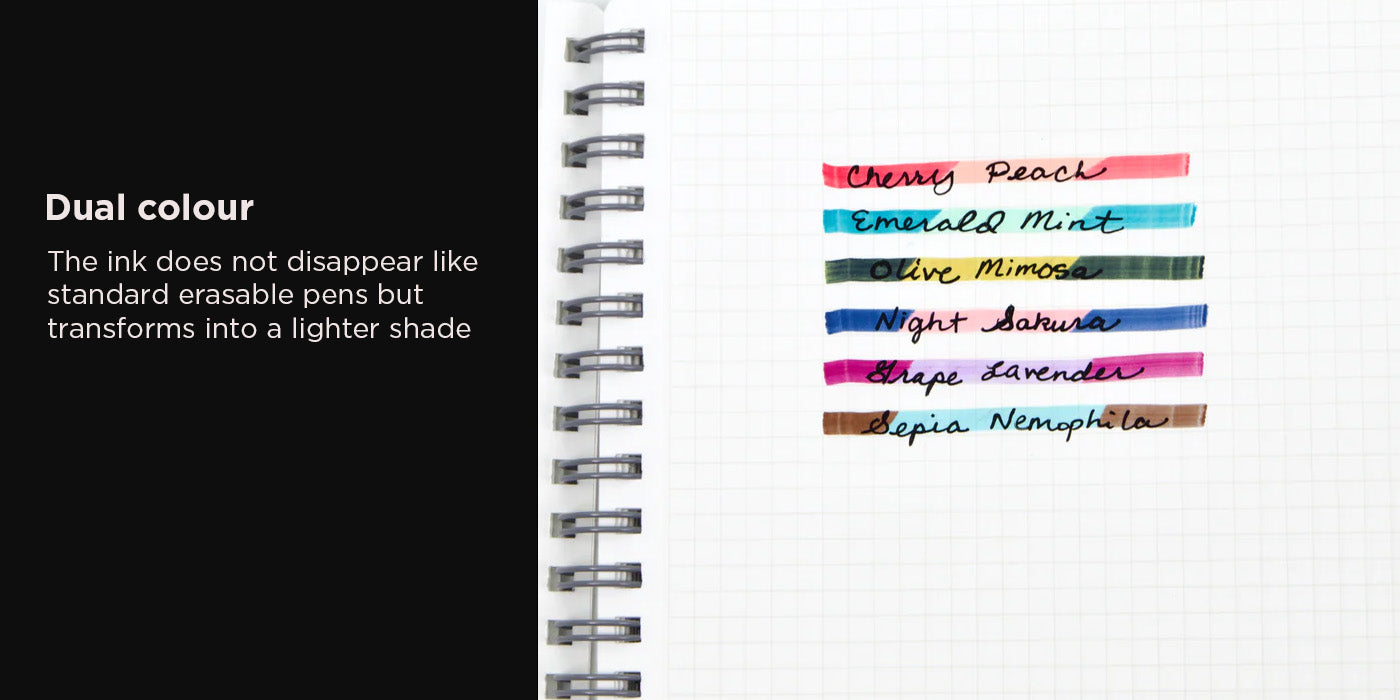 Dual colour
The ink does not disappear like
standard erasable pens but
transforms into a lighter shade
Cherry Peach
Emerald Mint
Olive Mimosa
Night Sakura
Grape Lavender
Sepia Nemophila